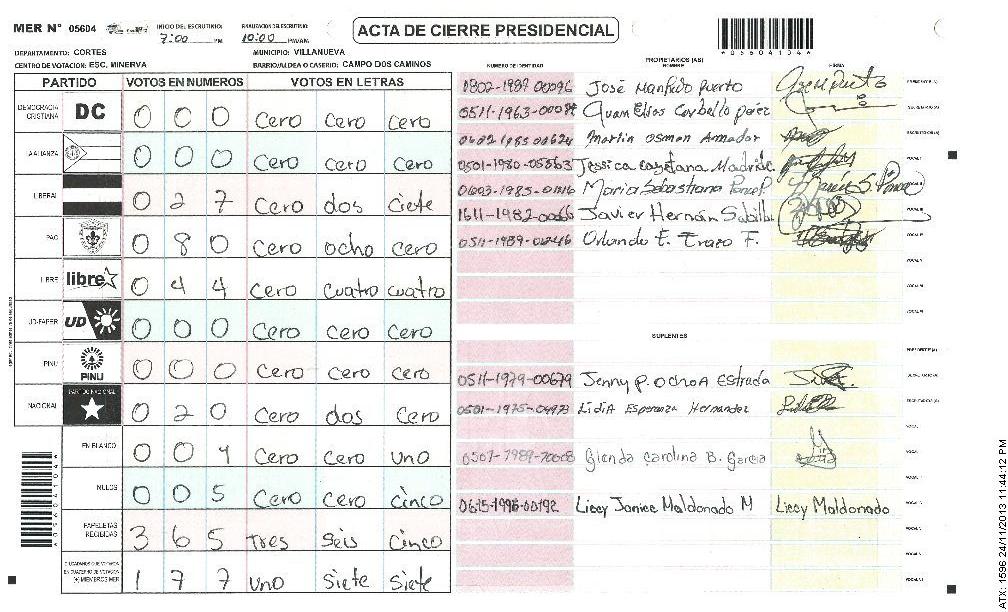 MER Nº 05604 INICIO DEL ESCRUTINIO: 7:00 PM FINALIZACION DEL ESCRUTINIO: 10:00 PM/AM.
ACTA DE CIERRE PRESIDENCIAL
DEPARTAMENTO: CORTES MUNICIPIO: VILLANUEVA
CENTRO DE VOTACION: ESC. MINERVA BARRIO/ALDEA O CASERIO: CAMPO DOS CAMINOS
PARTIDO VOTOS EN NUMEROS VOTOS EN LETRAS
DEMOCRACIA CRISTIANA DC 0 0 0 Cero Cero Cero
LA ALIANZA 0 0 0 Cero Cero Cero
LIBERAL 0 2 7 Cero dos Ciete
PAC 0 8 0 Cero ocho cero
LIBRE libre 0 4 4 Cero cuatro cuatro
UD-FAPER UD 0 0 0 Cero cero cero
PINU PINU 0 0 0 Cero cero cero
NACIONAL PARTIDO NACIONAL 0 2 0 Cero dos Cero
EN BLANCO 0 0 Cero Cero uno
NULOS 0 0 5 Cero cero cinco
PAPELETAS RECIBIDAS 3 6 5 Tres Seis Cinco
CIUDADANOS QUE VOTARON EN CUADERNO DE VOTACION (+) MIEMBROS MER 1 7 7 uno Siete Siete
PROPIETARIOS (AS)
NUMERO DE IDENTIDAD NOMBRE FIRMA
José Manfredo Puerto PRESIDENTE (A)
0511-1963- SECRETARIO (A)
Martin Osman Amador
0501-1980-05563 Jessica Cayetana
Maria Sebastiana
1611-1982-00066 Javier Hernán
0511-1989- Orlando E. Erazo F.
SUPLENTES
PRESIDENTE (A)
0511-1979-00679 Jenny P. Ochoa Estrada
0501-1975-04973 Lidia Esperanza Hernandez
Glenda Carolina B. Garcia
Licey Janice Maldonado M Licey Maldonado
ATX: 1596 24/11/2013 11:44:12 PM